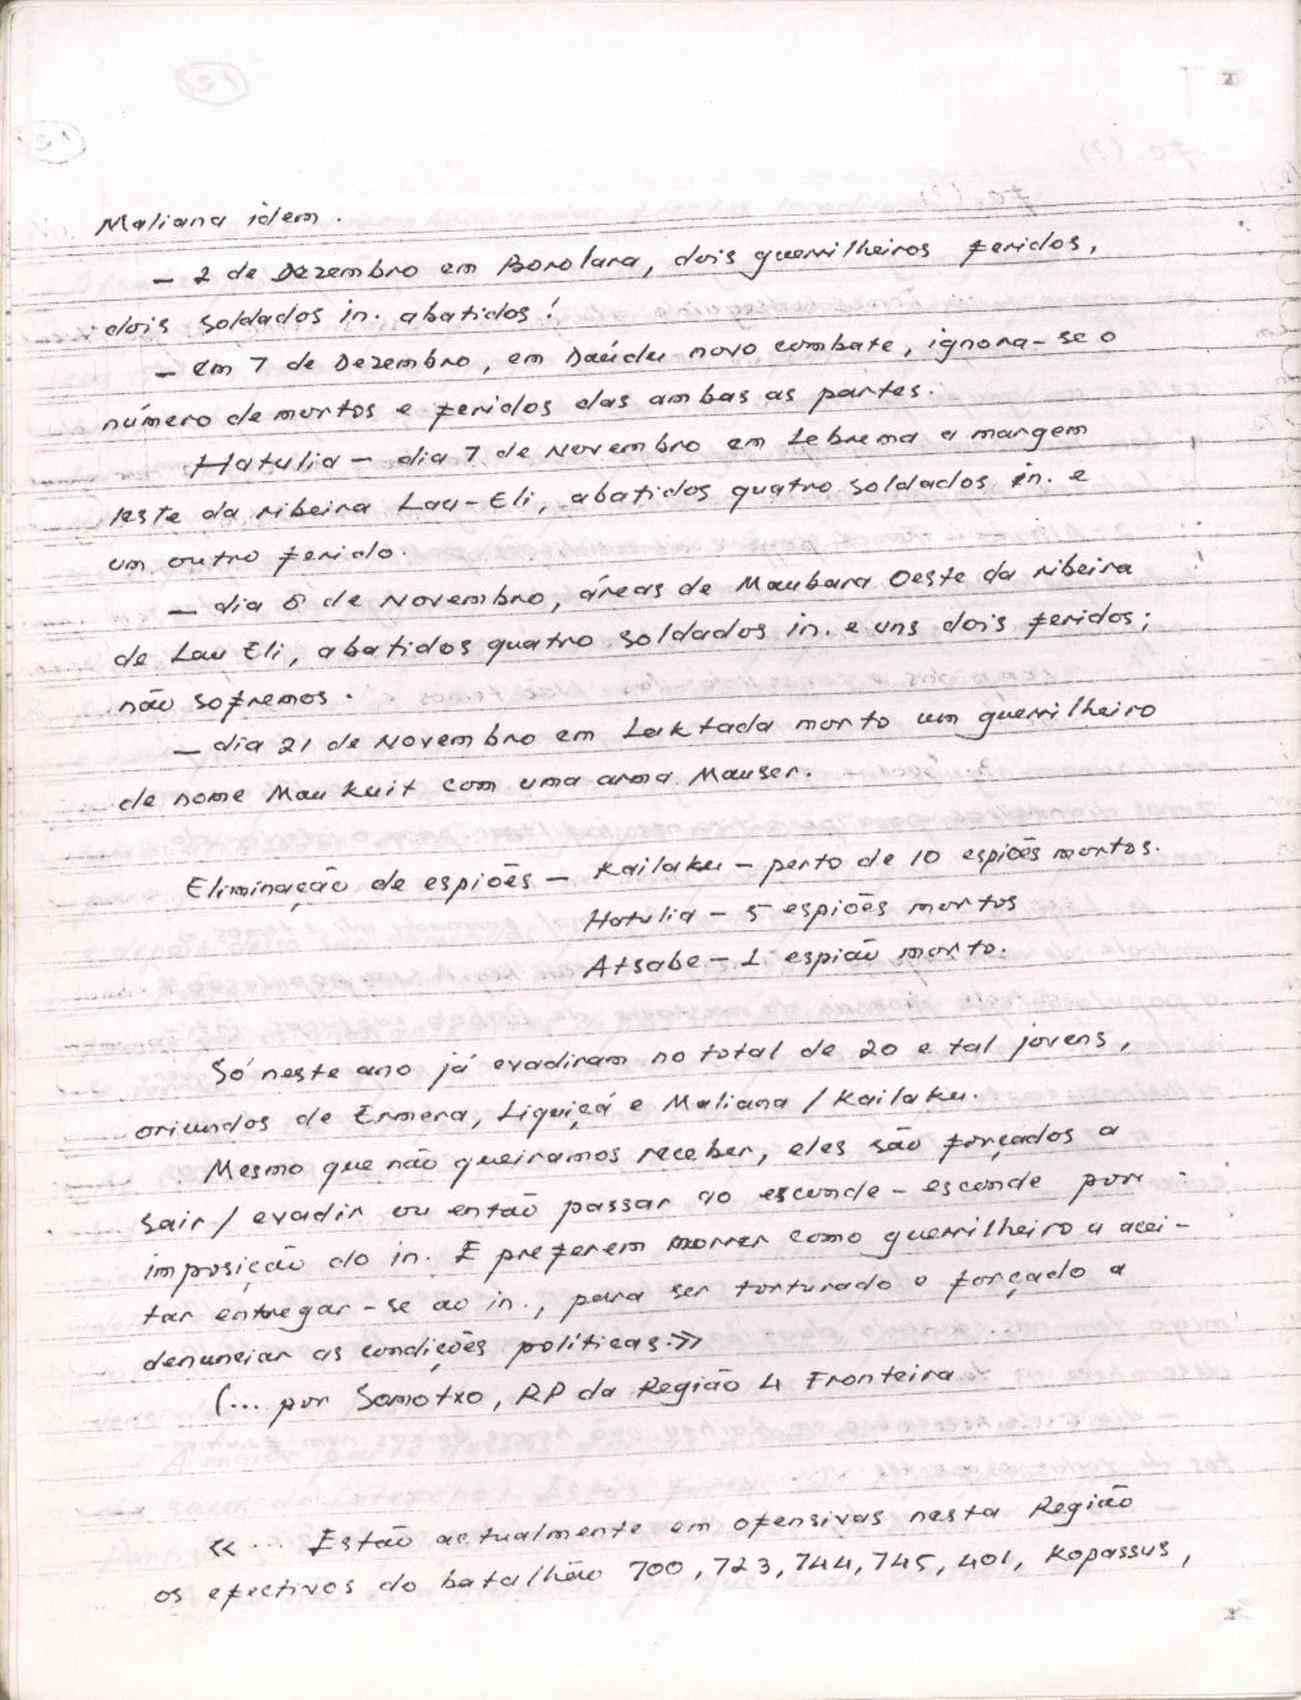 Maliana idem.
– 2 de Dezembro em Borolara, dois guerrilheiros feridos,
dois soldados in. abatidos!
– Em 7 de Dezembro, em Daúdu novo combate, ignora-se o
número de mortos e feridos das ambas as partes.
Hatulia – dia 7 de Novembro em Lebrema a margem
leste da ribeira Lau-Eli, abatidos quatro soldados in. e
um outro ferido.
– dia 8 de Novembro, áreas de Maubara Oeste da ribeira
de Lau Eli, abatidos quatro soldados in. e uns dois feridos;
não sofremos.
– dia 21 de Novembro em Laktada morto um guerrilheiro
de nome Mau Kuit com uma arma Mauser.
Eliminação de espiões – Kailaku – perto de 10 espiões mortos.
Hatulia – 5 espiões mortos
Atsabe – 1 espião morto.
Só neste ano já evadiram no total de 20 e tal jovens,
oriundos de Ermera, Liquiçá e Maliana / Kailaku.
Mesmo que não queiramos receber, eles são forçados a
sair / evadir ou então passar ao esconde-esconde por
imposição do in. E preferem morrer como guerrilheiro a acei-
tar entregar-se ao in., para ser torturado e forçado a
denunciar as condições políticas.>>
(... por Somotxo, RP da Região 4 Fronteira
<< ... Estão actualmente em ofensivas nesta Região
os efectivos do batalhão 700, 723, 744, 745, 401, Kopassus,